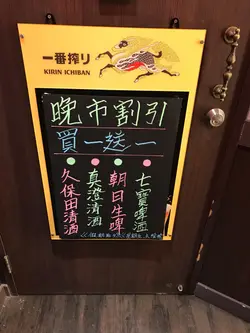 一番搾り
KIRIN ICHIBAN
晚市割引
買一送一
久保田清酒
真澄清酒
朝日生啤
七寶啤酒